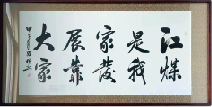 江煤
是我
家發
展靠
大家